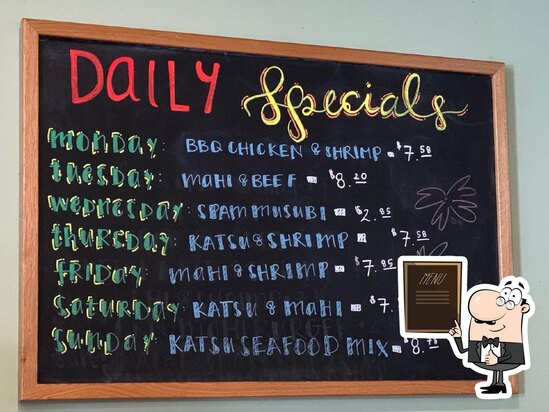 DAILY Specials
monday: BBQ CHICKEN & SHRIMP - $7.58
tuesday: MAHI & BEEF - $8.20
wednesday: SPAM MUSUBI - $2.85
thursday: KATSU & SHRIMP - $7.58
FRIDAY: MAHI & SHRIMP - $7.95
saturday: KATSU & MAHI - $7.
sunday: KATSU SEAFOOD MIX - $8.
MENU